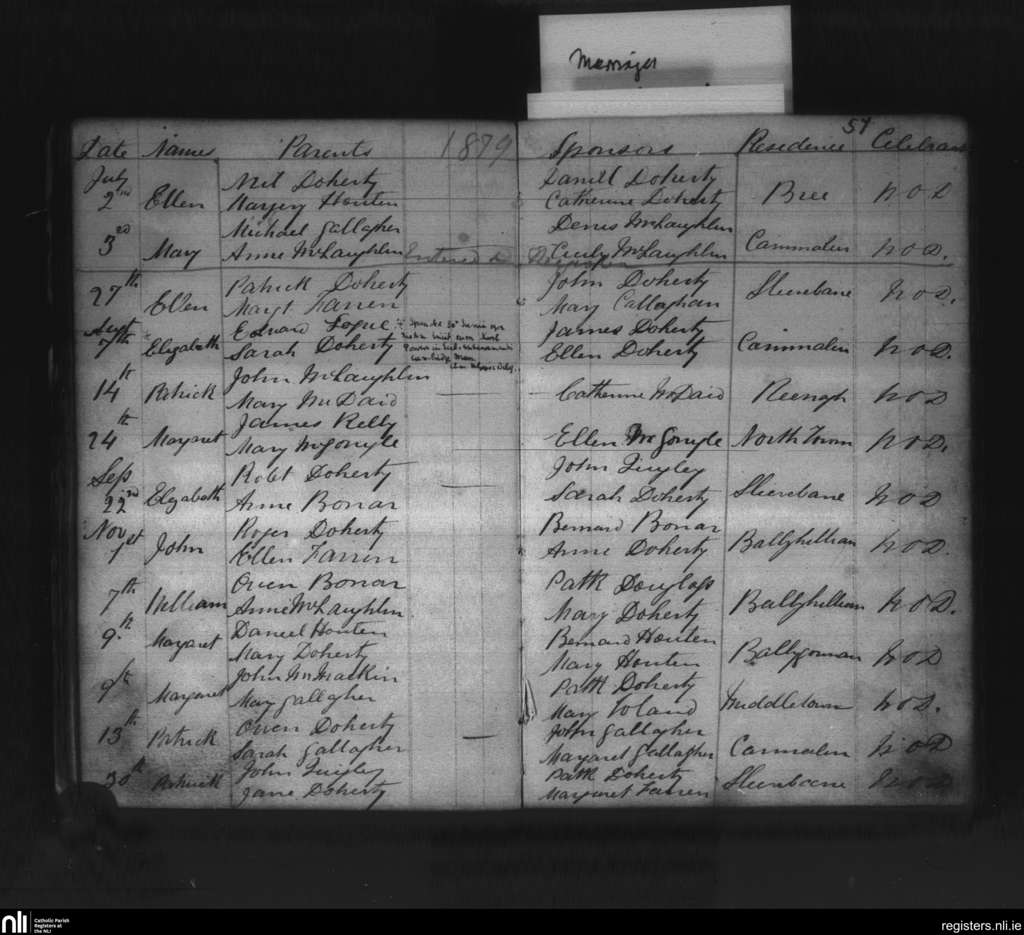 Marriages
57
Date Names Parents 1879 Sponsors Residence Celebrant
July Mel Doherty Daniel Doherty
2nd Ellen Margery Houten Catherine Doherty Bree h o D
Michael Gallagher Denis McLaughlin
3rd Mary Anne McLaughlin Entered Cecily McLaughlin Carnmalin h o D.
27th Patrick Doherty John Doherty Slievebane h o D.
Ellen Margt Farren Mary Callaghan
Augt Edward Logue James Doherty
7th Elizabeth Sarah Doherty Ellen Doherty Carnmalin h o D.
14th Patrick John McLaughlin
Mary McDaid — Catherine McDaid Reengh h o D
James Kelly
24th Margaret Mary McGonyle Ellen McGonyle North Town h o D.
Sep Robt Doherty — John Quigley
22nd Elizabeth Anne Bonar Sarah Doherty Slievebane h o D
Nov Roger Doherty Bernard Bonar
1st John Ellen Farren Anne Doherty Ballyhillian h o D.
7th Owen Bonar Patk Douglass
William Anne McLaughlin Mary Doherty Ballyhillian h o D.
9th Daniel Houten Bernard Houten
Margaret Mary Doherty Mary Houten Ballygorman h o D
9th John McMackin Patk Doherty
Margaret Mary Gallagher Mary Toland Middletown h o D.
13th Owen Doherty — John Gallagher
Patrick Sarah Gallagher Margaret Gallagher Carnmalin h o D
30th John Quigley Patk Doherty
Patrick Jane Doherty Margaret Farren Slievebane h o D
nli Catholic Parish
Registers at
the NLI
registers.nli.ie